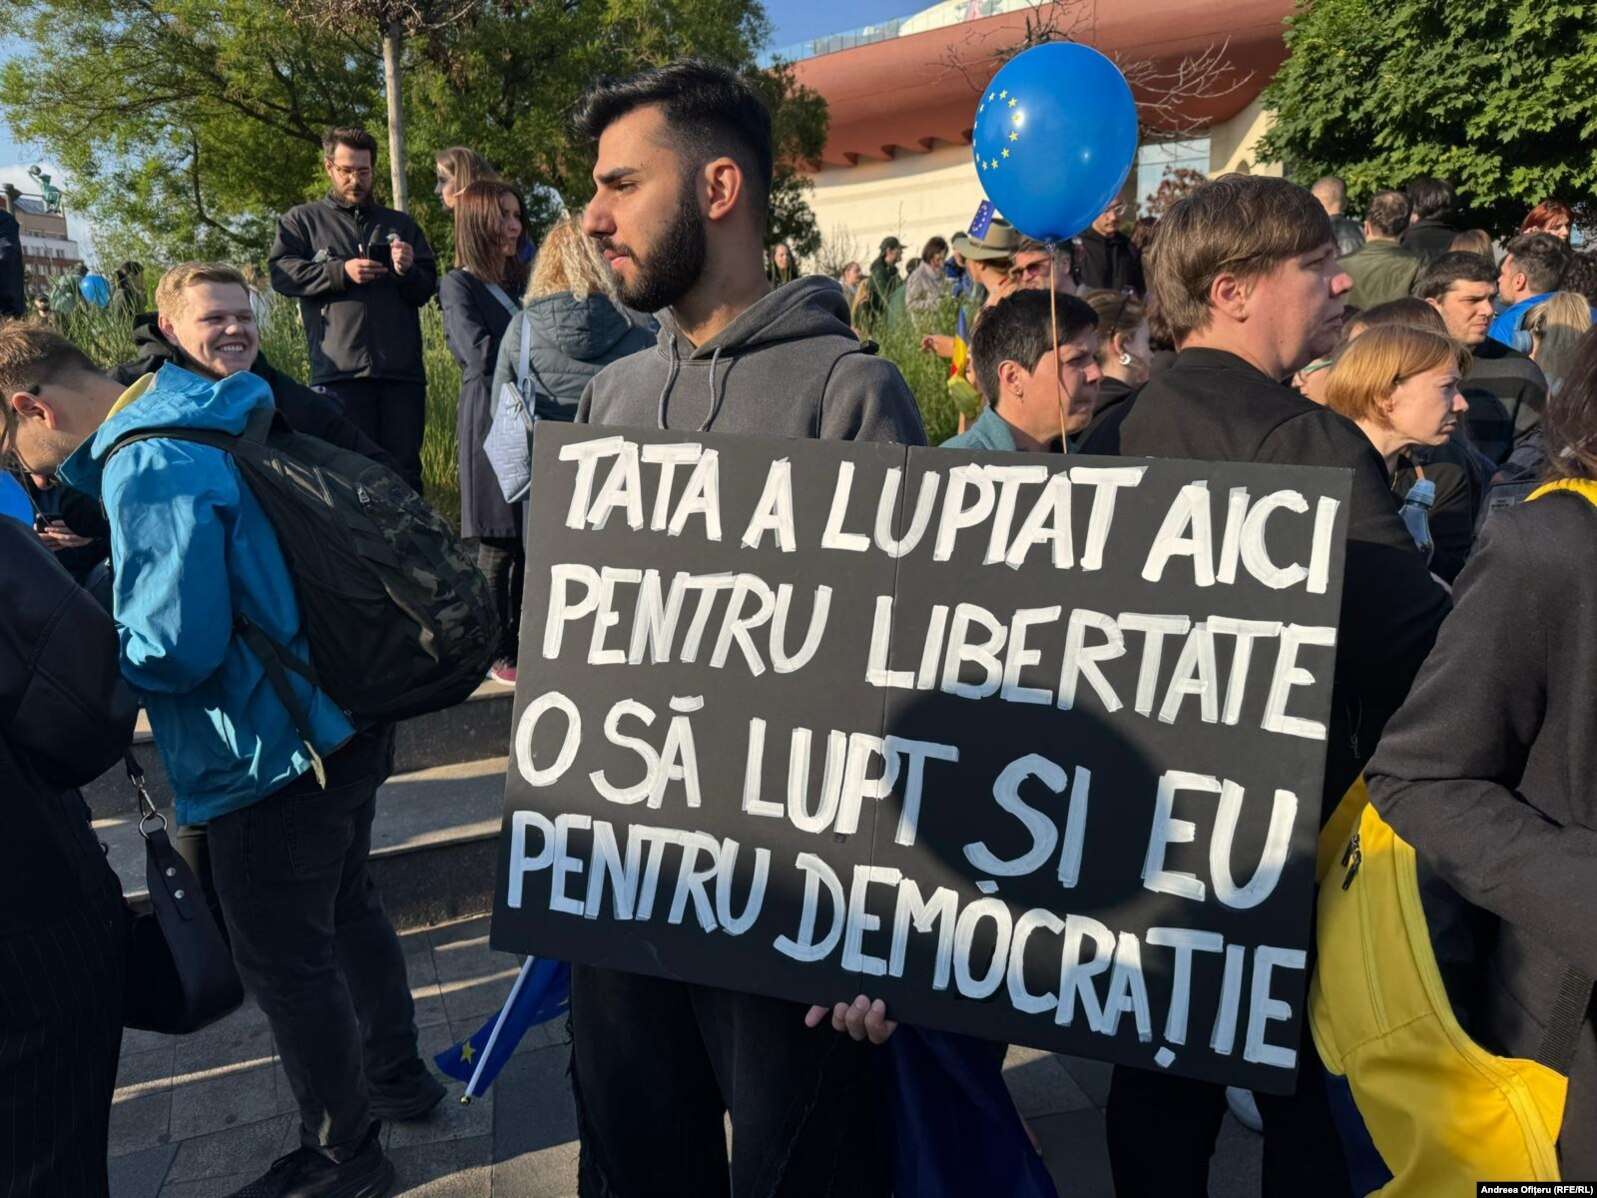 TATA A LUPTAT AICI
PENTRU LIBERTATE
O SĂ LUPT ȘI EU
PENTRU DEMOCRAȚIE
Andreea Ofițeru (RFE/RL)